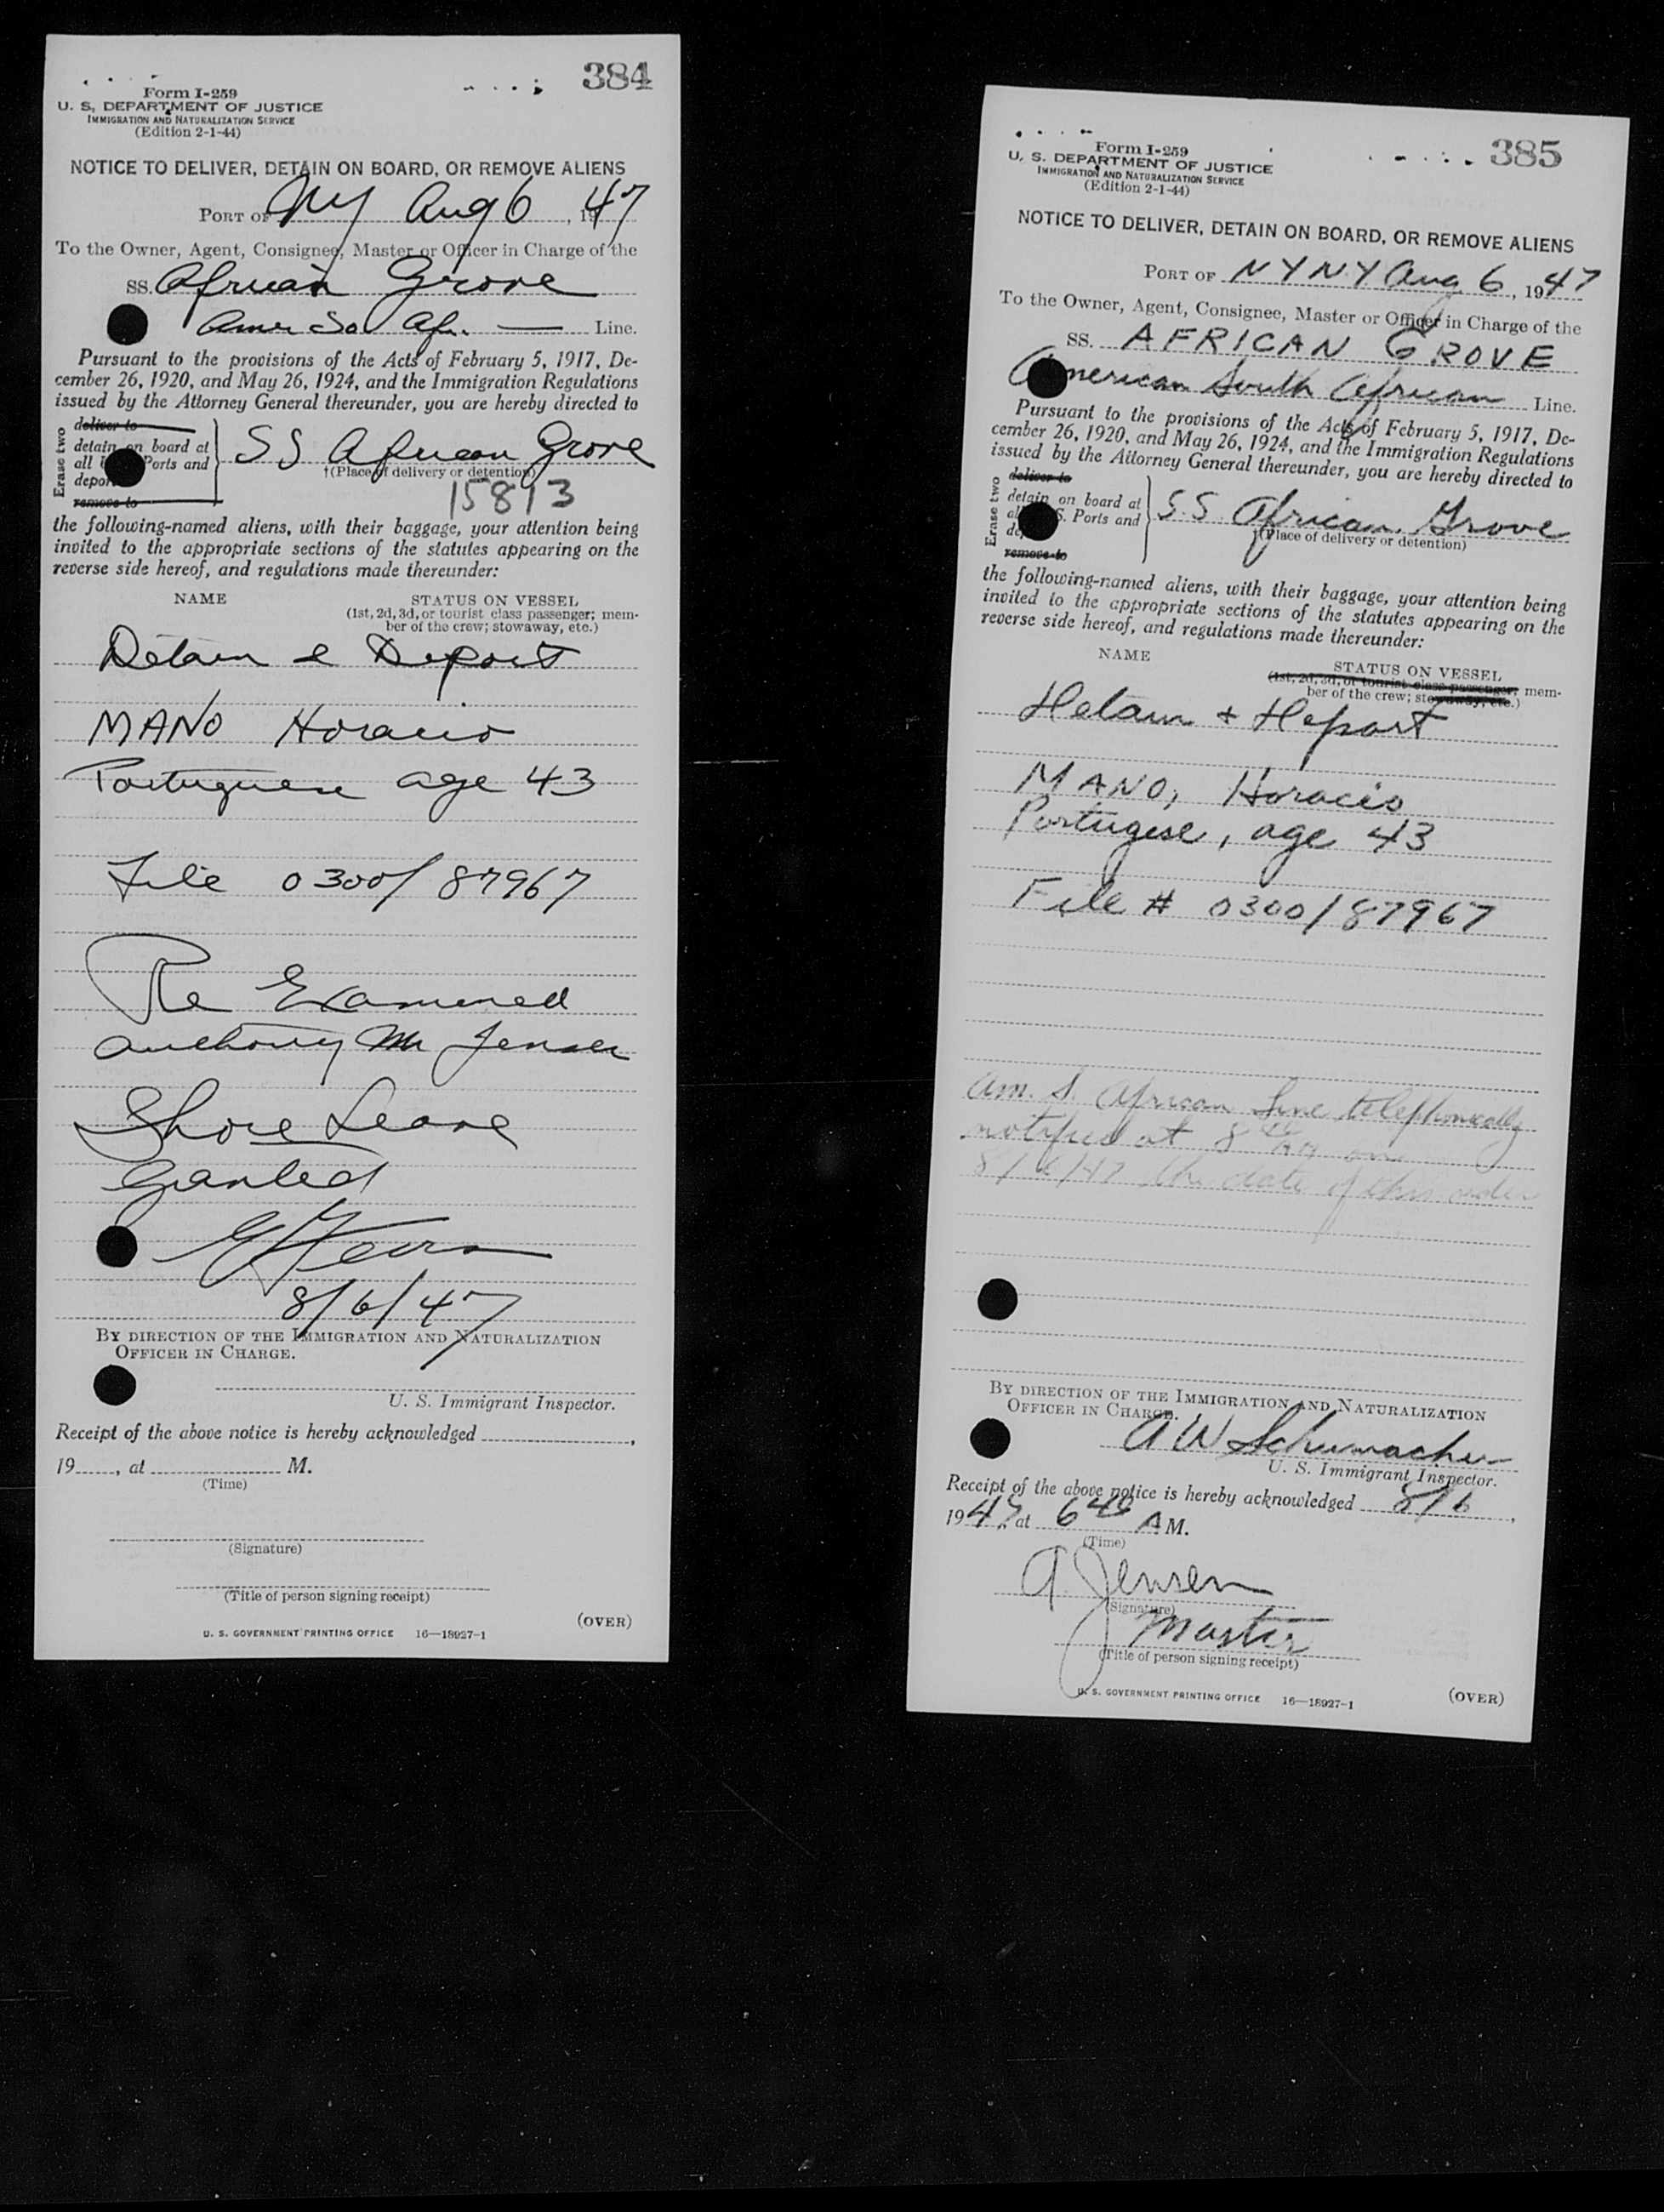 384
Form I-259
U. S. DEPARTMENT OF JUSTICE
IMMIGRATION AND NATURALIZATION SERVICE
(Edition 2-1-44)
NOTICE TO DELIVER, DETAIN ON BOARD, OR REMOVE ALIENS
PORT OF NY Aug 6, 1947
To the Owner, Agent, Consignee, Master or Officer in Charge of the
SS. African Grove
Amer So Afr. — Line.
Pursuant to the provisions of the Acts of February 5, 1917, De-
cember 26, 1920, and May 26, 1924, and the Immigration Regulations
issued by the Attorney General thereunder, you are hereby directed to
Erase two
deliver to
detain on board at
all Ports and
depor
remove to
SS African Grove
†(Place of delivery or detention)
15813
the following-named aliens, with their baggage, your attention being
invited to the appropriate sections of the statutes appearing on the
reverse side hereof, and regulations made thereunder:
NAME STATUS ON VESSEL
(1st, 2d, 3d, or tourist class passenger; mem-
ber of the crew; stowaway, etc.)
Detain & Deport
MANO Horacio
Portuguese age 43
File 0300/87967
Re Examined
Anthony M Jensen
Shore Leave
Granted
8/6/47
BY DIRECTION OF THE IMMIGRATION AND NATURALIZATION
OFFICER IN CHARGE.
U. S. Immigrant Inspector.
Receipt of the above notice is hereby acknowledged
19 , at M.
(Time)
(Signature)
(Title of person signing receipt)
(OVER)
U. S. GOVERNMENT PRINTING OFFICE 16—18927-1
385
Form I-259
U. S. DEPARTMENT OF JUSTICE
IMMIGRATION AND NATURALIZATION SERVICE
(Edition 2-1-44)
NOTICE TO DELIVER, DETAIN ON BOARD, OR REMOVE ALIENS
PORT OF NYNY Aug 6, 1947
To the Owner, Agent, Consignee, Master or Officer in Charge of the
SS. AFRICAN GROVE
American South African Line.
Pursuant to the provisions of the Acts of February 5, 1917, De-
cember 26, 1920, and May 26, 1924, and the Immigration Regulations
issued by the Attorney General thereunder, you are hereby directed to
Erase two
deliver to
detain on board at
al S. Ports and
de
remove to
S.S. African Grove
†(Place of delivery or detention)
the following-named aliens, with their baggage, your attention being
invited to the appropriate sections of the statutes appearing on the
reverse side hereof, and regulations made thereunder:
NAME STATUS ON VESSEL
(1st, 2d, 3d, or tourist class passenger; mem-
ber of the crew; stowaway, etc.)
Detain + Deport
MANO, Horacio
Portugese, age 43
File # 0300/87967
Am. S. African Line telephonically
notified at on
8/6/47 the date of this order
BY DIRECTION OF THE IMMIGRATION AND NATURALIZATION
OFFICER IN CHARGE.
A W Schumacher
U. S. Immigrant Inspector.
Receipt of the above notice is hereby acknowledged 8/6,
1947, at 6 40 A M.
(Time)
A. Jensen
(Signature)
Master
(Title of person signing receipt)
U. S. GOVERNMENT PRINTING OFFICE 16—18927-1
(OVER)